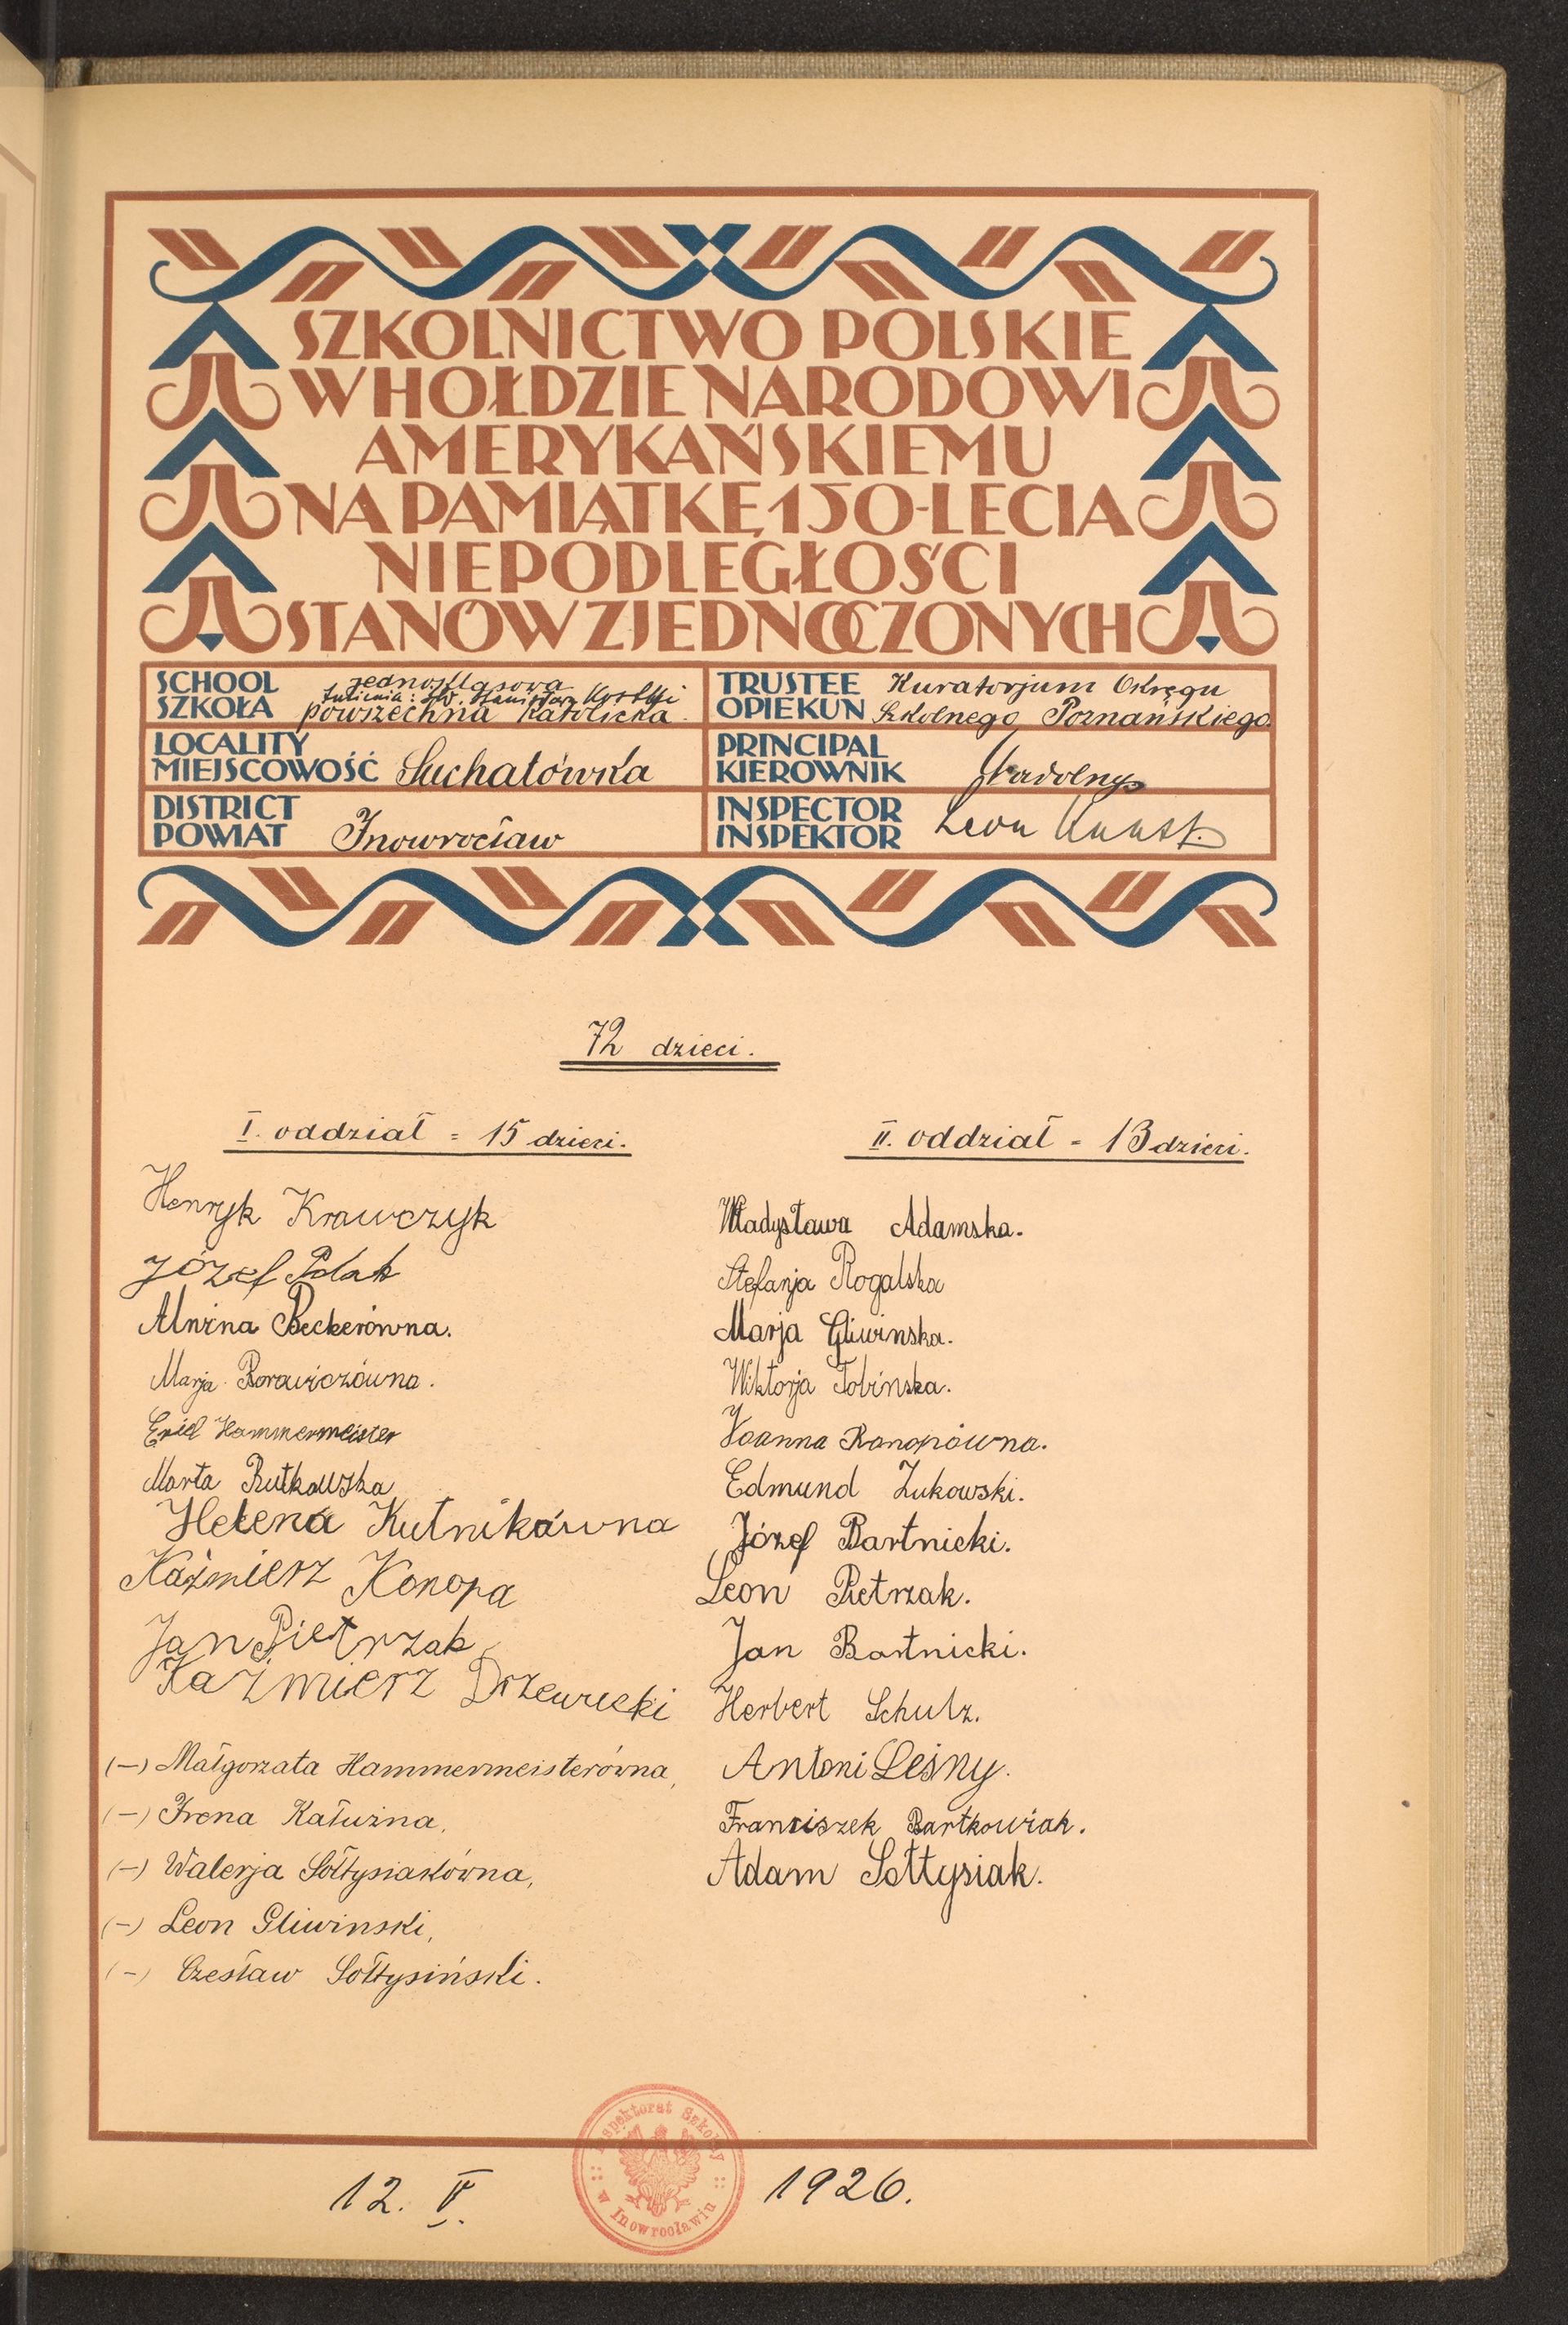 SZKOLNICTWO POLSKIE
W HOŁDZIE NARODOWI
AMERYKAŃSKIEMU
NA PAMIĄTKĘ 150-LECIA
NIEPODLEGŁOŚCI
STANÓW ZJEDNOCZONYCH
SCHOOL
SZKOŁA
jednoklasowa
imienia: św. Stanisława Kostki
powszechna katolicka
TRUSTEE
OPIEKUN
Kuratorjum Okręgu
Szkolnego Poznańskiego
LOCALITY
MIEJSCOWOŚĆ Suchatówka
PRINCIPAL
KIEROWNIK
DISTRICT
POWIAT Inowrocław
INSPECTOR
INSPEKTOR Leon
72 dzieci.
I. oddział = 15 dzieci.
Henryk Krawczyk
Józef Polak
Beckerówna.
Marja Borowiczówna.
Hammermeister
Marta Rutkowska
Helena Kutnikówna
Kaźmierz Konopa
Jan Pietrzak
Kaźmierz Drzewiecki
(-) Małgorzata Hammermeisterówna,
(-) Irena Kałużna,
(-) Walerja Sołtysiakówna,
(-) Leon Gliwinski,
(-) Czesław Sołtysiński.
II. oddział = 13 dzieci.
Władysława Adamska.
Stefanja Rogalska
Marja Gliwinska.
Wiktorja Tobinska.
Joanna Konopówna.
Edmund Żukowski.
Józef Bartnicki.
Leon Pietrzak.
Jan Bartnicki.
Herbert Schulz.
Antoni Leśny.
Franciszek Bartkowiak.
Adam Sołtysiak.
Inspektorat Szkolny
w Inowrocławiu
12. V. 1926.